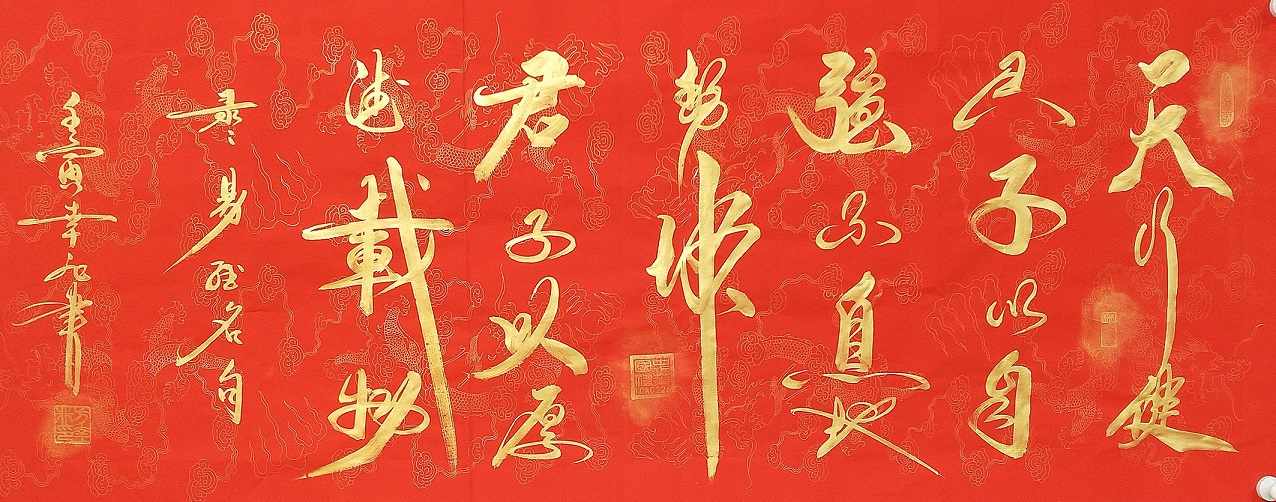 天行健
君子以自
強不息地
勢坤
君子以厚
德載物
录易经名句
壬寅